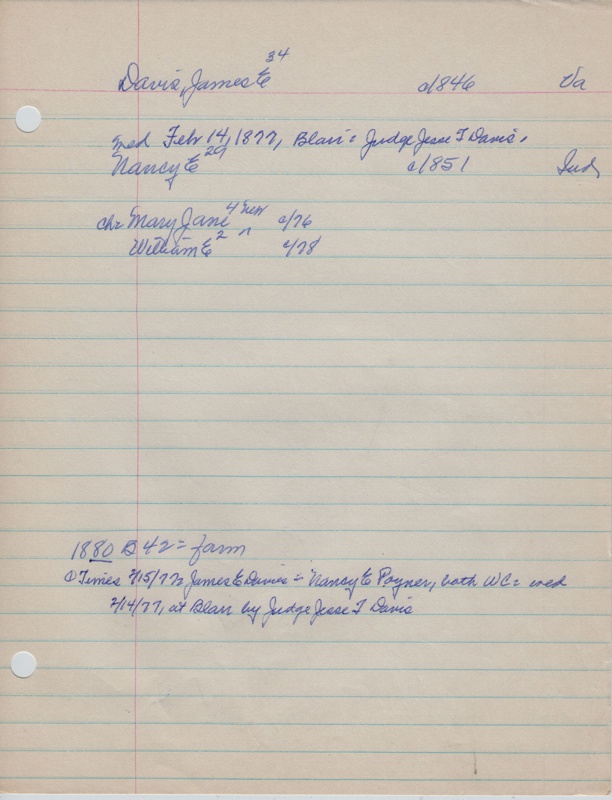 Davis, James E 34 c/1846 Va
med Feb 14, 1877, Blair = Judge Jesse T Davis.
Nancy E 29 c/1851 Ind
chr Mary Jane 4 Nebr c/76
William E 2 " c/78
1880 B 42 = farm
① Times 2/15/77 = James E Davis = Nancy E Poyner, both WC = med
2/14/77, at Blair by Judge Jesse T Davis